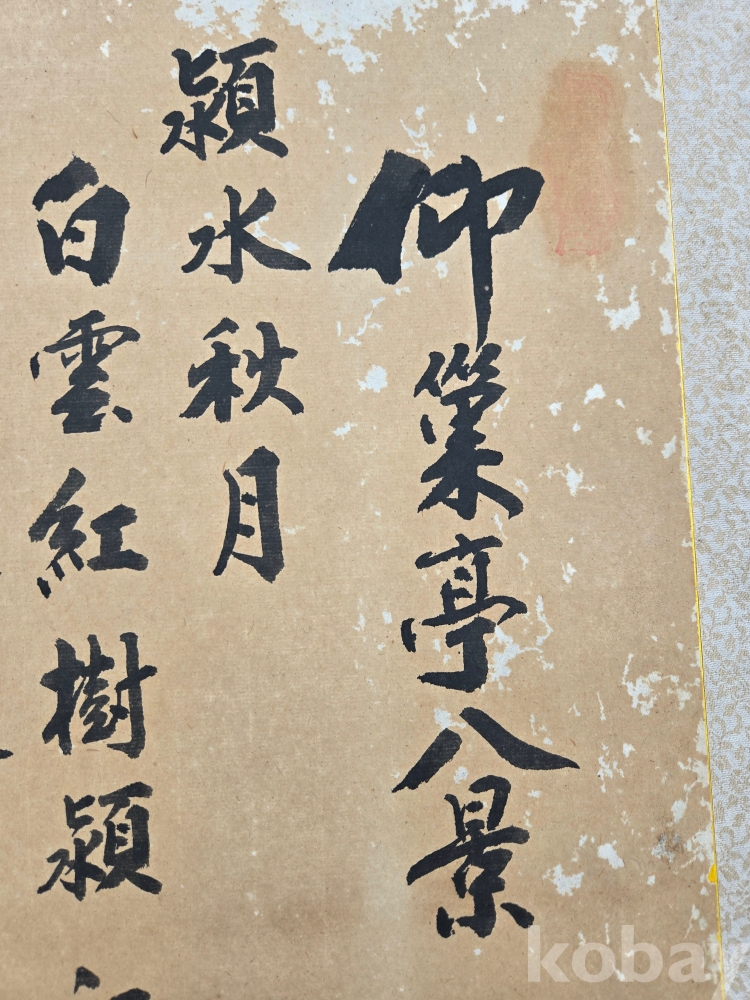 仰巢亭八景
潁水秋月
白雲紅樹潁
kobay